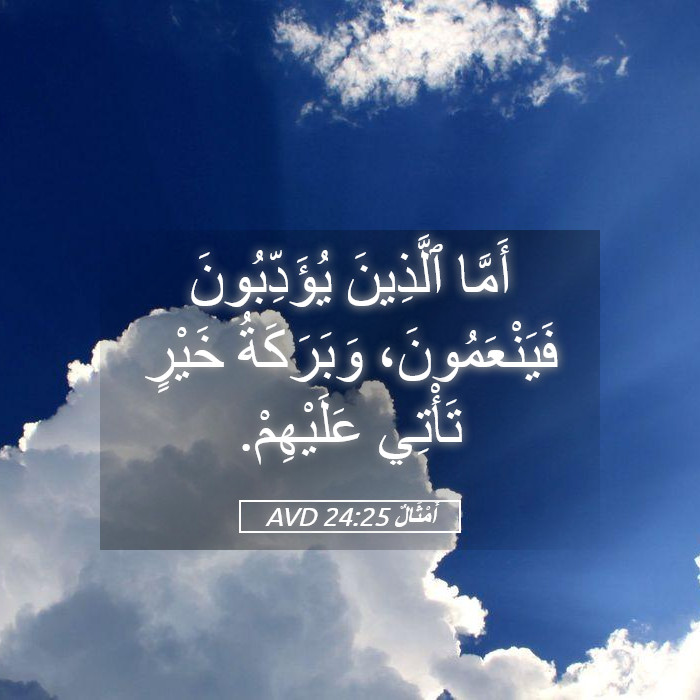 أَمَّا ٱلَّذِينَ يُؤَدِّبُونَ
فَيَنْعَمُونَ، وَبَرَكَةُ خَيْرٍ
تَأْتِي عَلَيْهِمْ.
أَمْثَالٌ 24:25 AVD